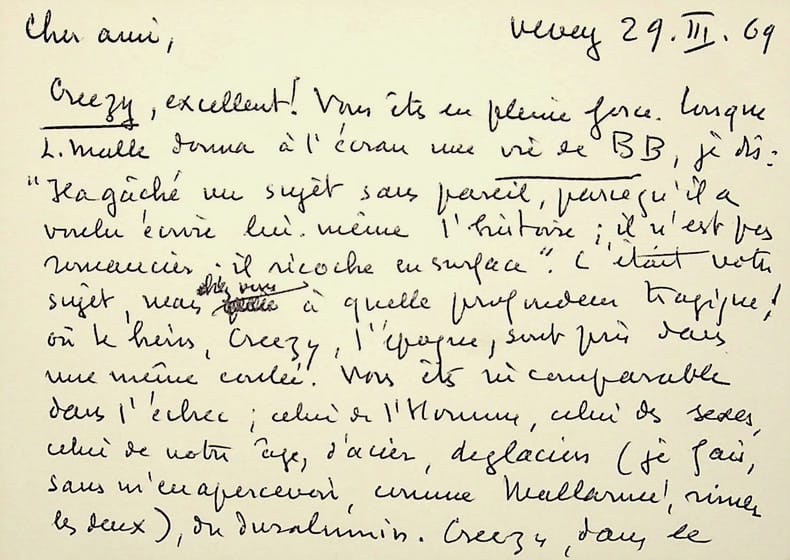 Cher ami, Vevey 29.III.69
Creezy, excellent! Vous êtes en pleine force. Lorsque
L. Malle donna à l'écran une vie de BB, je dis:
"Il a gâché un sujet sans pareil, parce qu'il a
voulu écrire lui-même l'histoire; il n'est pas
romancier. il ricoche en surface". C'était votre
sujet, mais chez vous à quelle profondeur tragique!
où le héros, Creezy, l'époque, sont pris dans
une même coulée. Vous êtes incomparable
dans l'échec; celui de l'Homme, celui des sexes,
celui de notre âge, d'acier, de glaciers (je fais,
sans m'en apercevoir, comme Mallarmé, rimer
les deux), du duralumin. Creezy, dans le